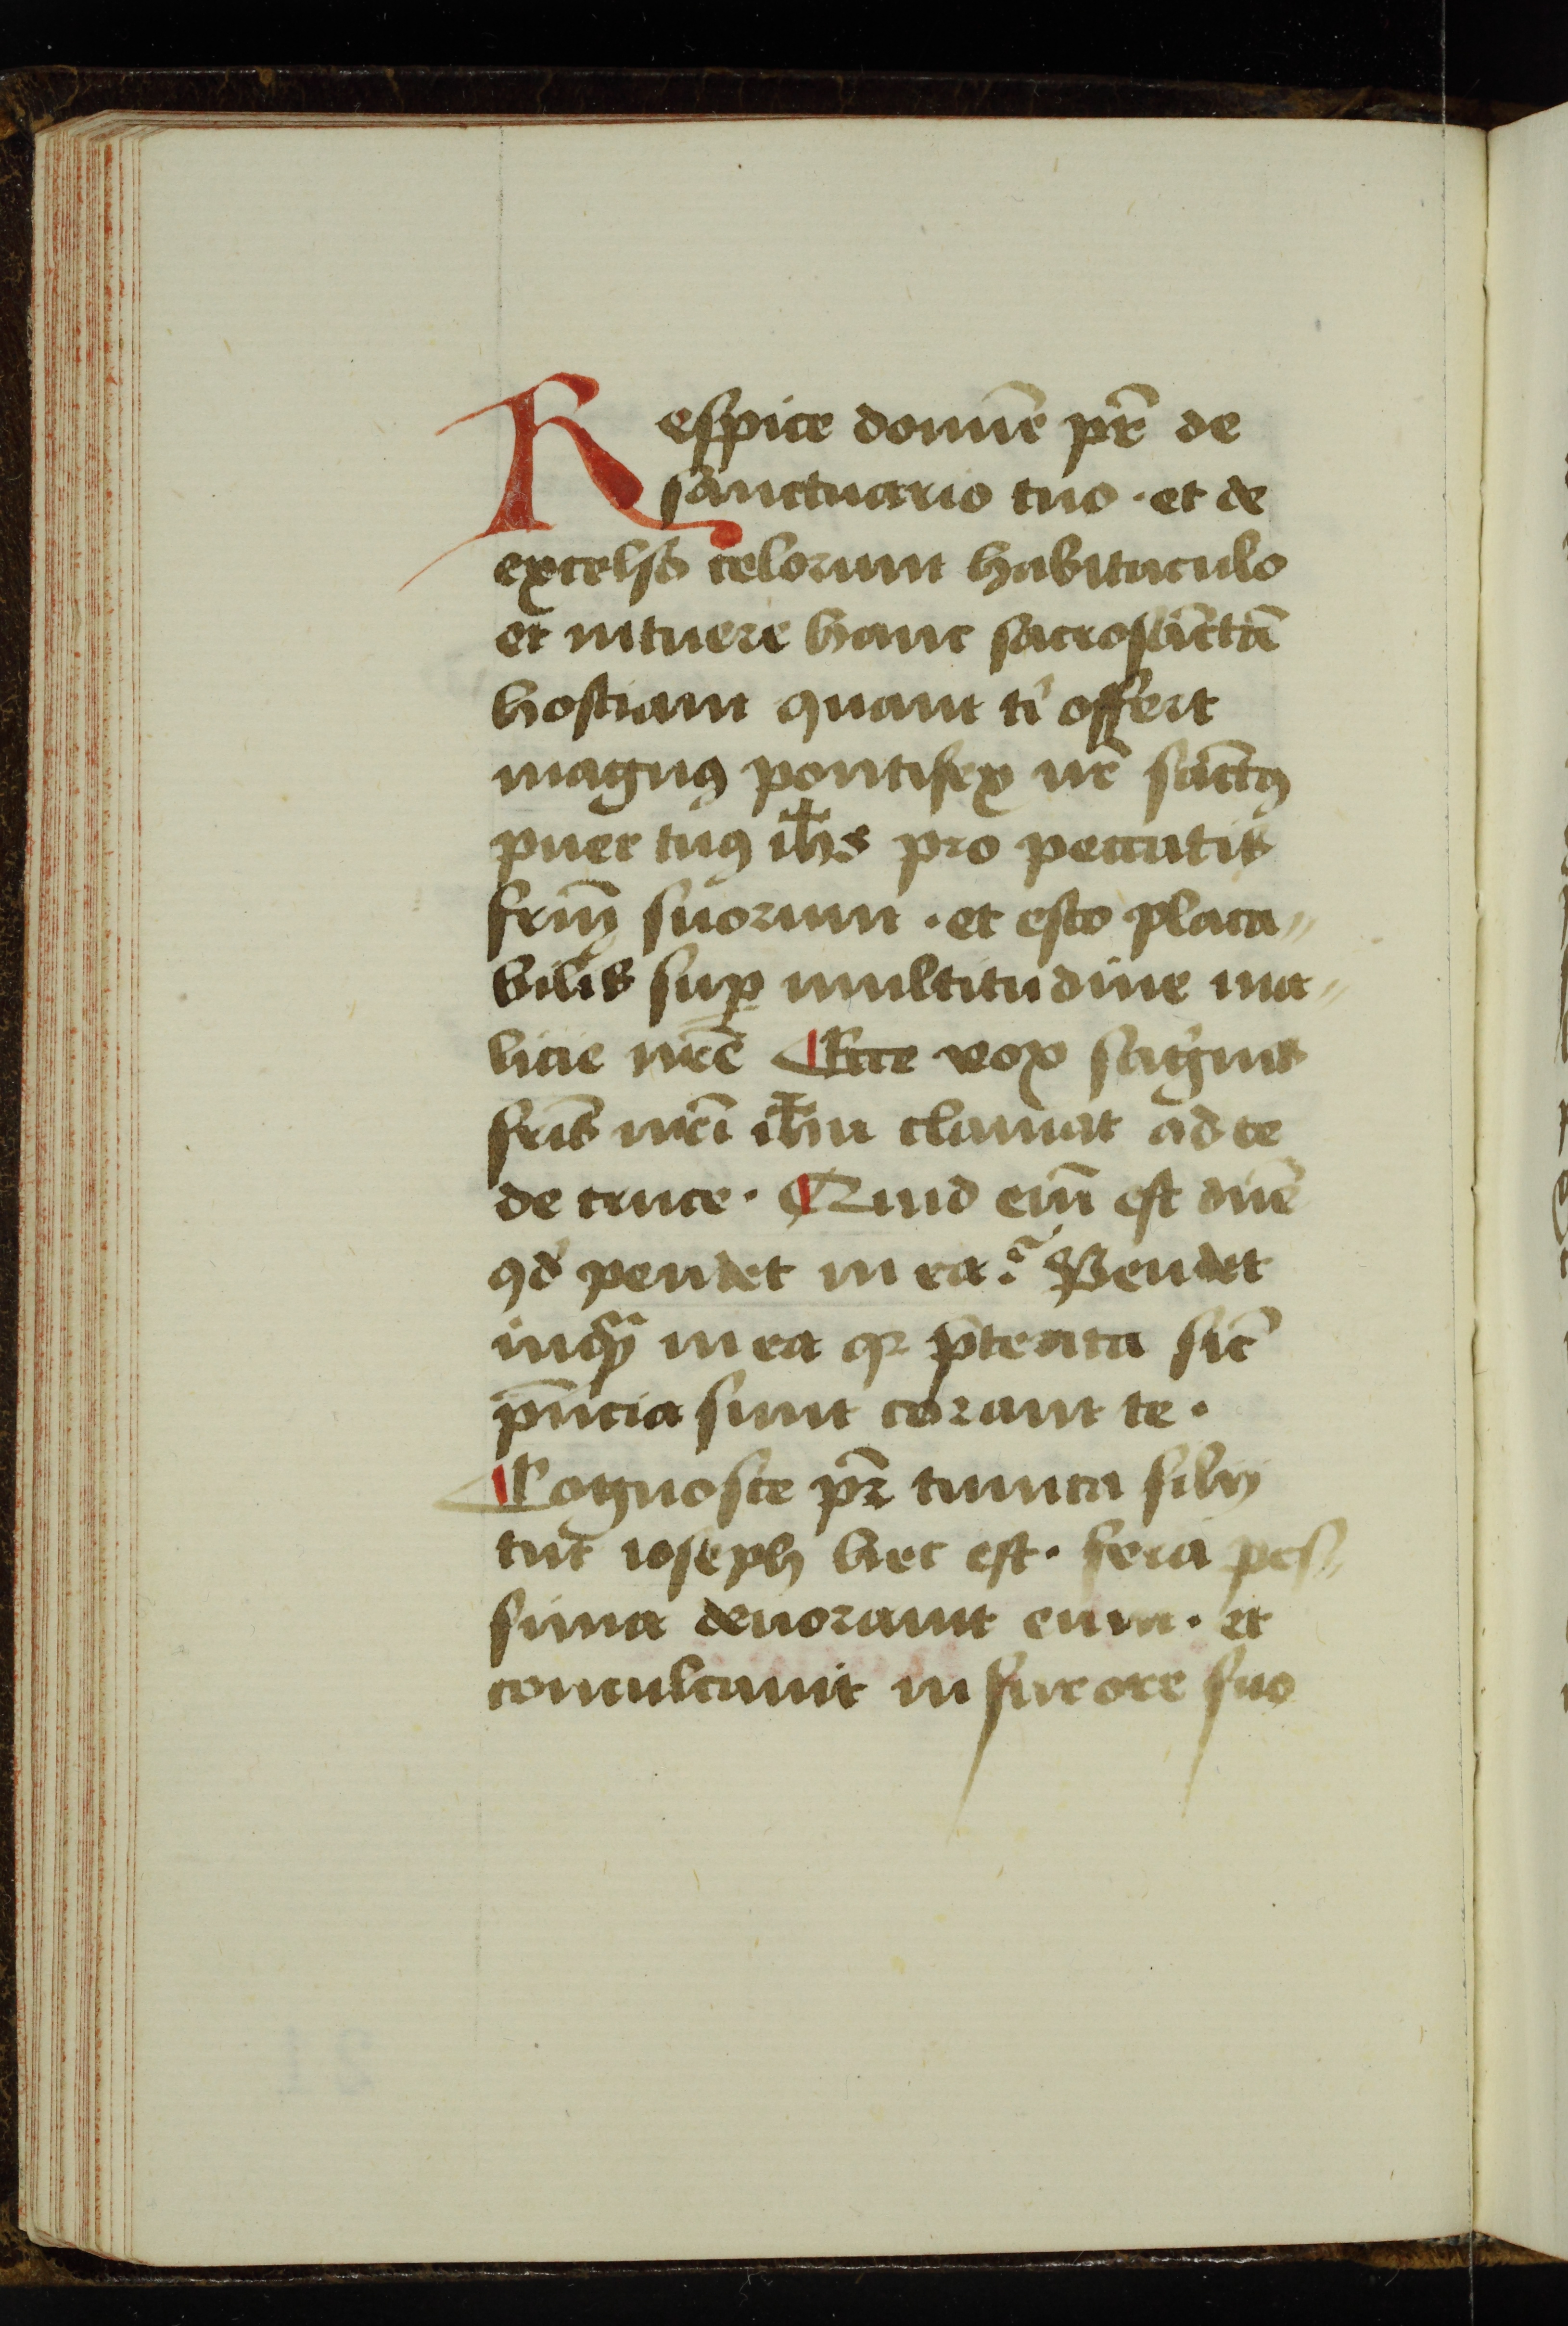 Respice domīe pr̄ de
sanctuario tuo · et de
excelso celorum habitaculo
et intuere hanc sacrosāctā
hostiam quam ti offert
magnꝰ pontifex nr̄ sāctꝰ
puer tuꝰ ih̄s pro peccatis
frm̄ suorum · et esto placa〃
bilis suꝑ multitudine ma〃
licie nr̄e Ecce vox sāgͥnis
fr̄is nr̄i ih̄u clamat ad te
de cruce · Quid em̄ est dn̄e
qd̓ pendet in ea? Pendet
inqͣ in ea qꝛ p̄terita sic̄
pn̄cia sunt coram te ·
Cognosce pr̄ tunica filij
tui ioseph hec est · fera pes〃
sima deuorauit eum · et
conculcauit in furore suo